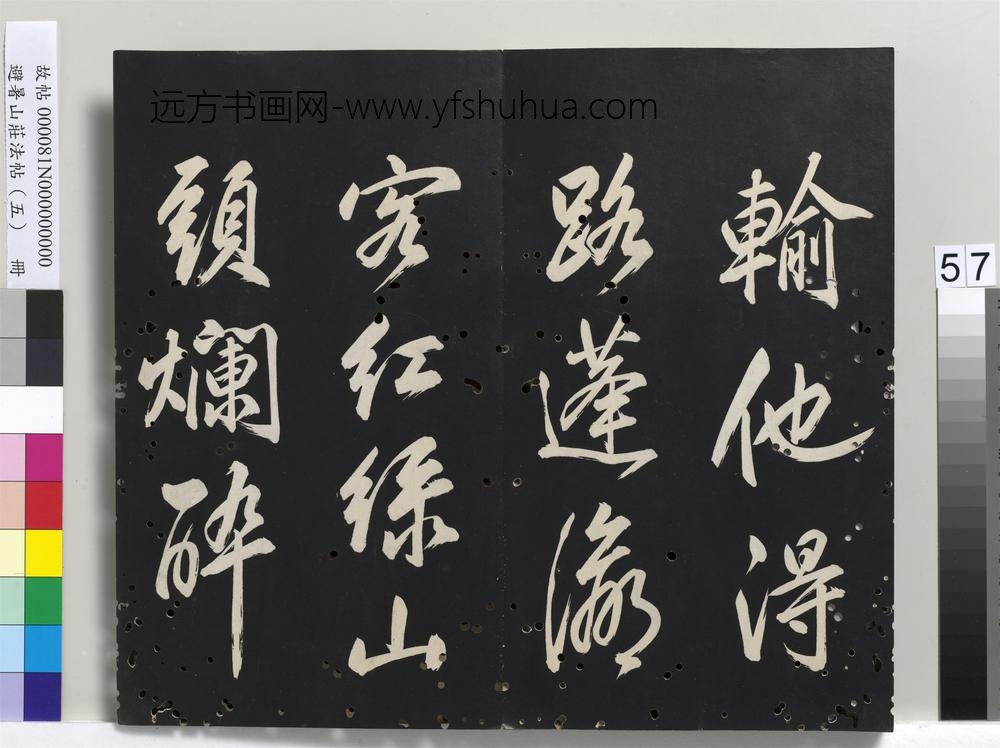 远方书画网-www.yfshuhua.com
輸他得
路蓬瀛
客紅綠山
頭爛醉
57
故帖 000081N000000000
避暑山莊法帖（五） 冊